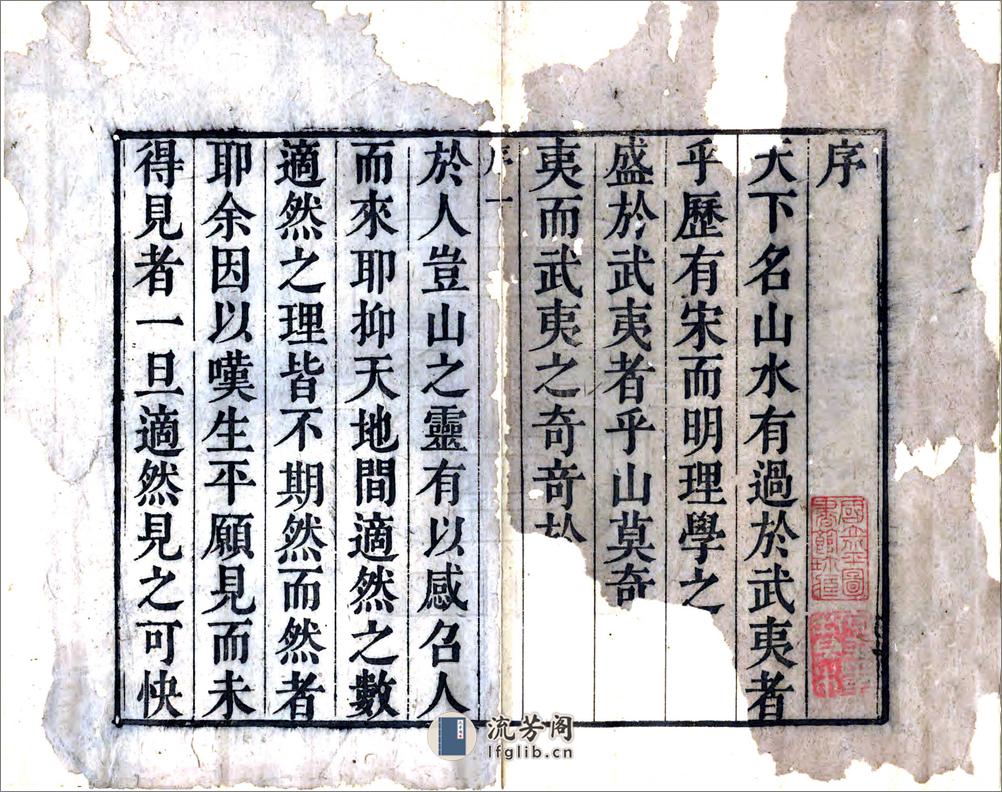 序
天下名山水有過於武夷者
乎歷有宋而明理學之
盛於武夷者乎山莫奇
夷而武夷之奇奇於
序一
於人豈山之靈有以感召人
而來耶抑天地間適然之數
適然之理皆不期然而然者
耶余因以嘆生平願見而未
得見者一旦適然見之可快
流芳阁
lfglib.cn